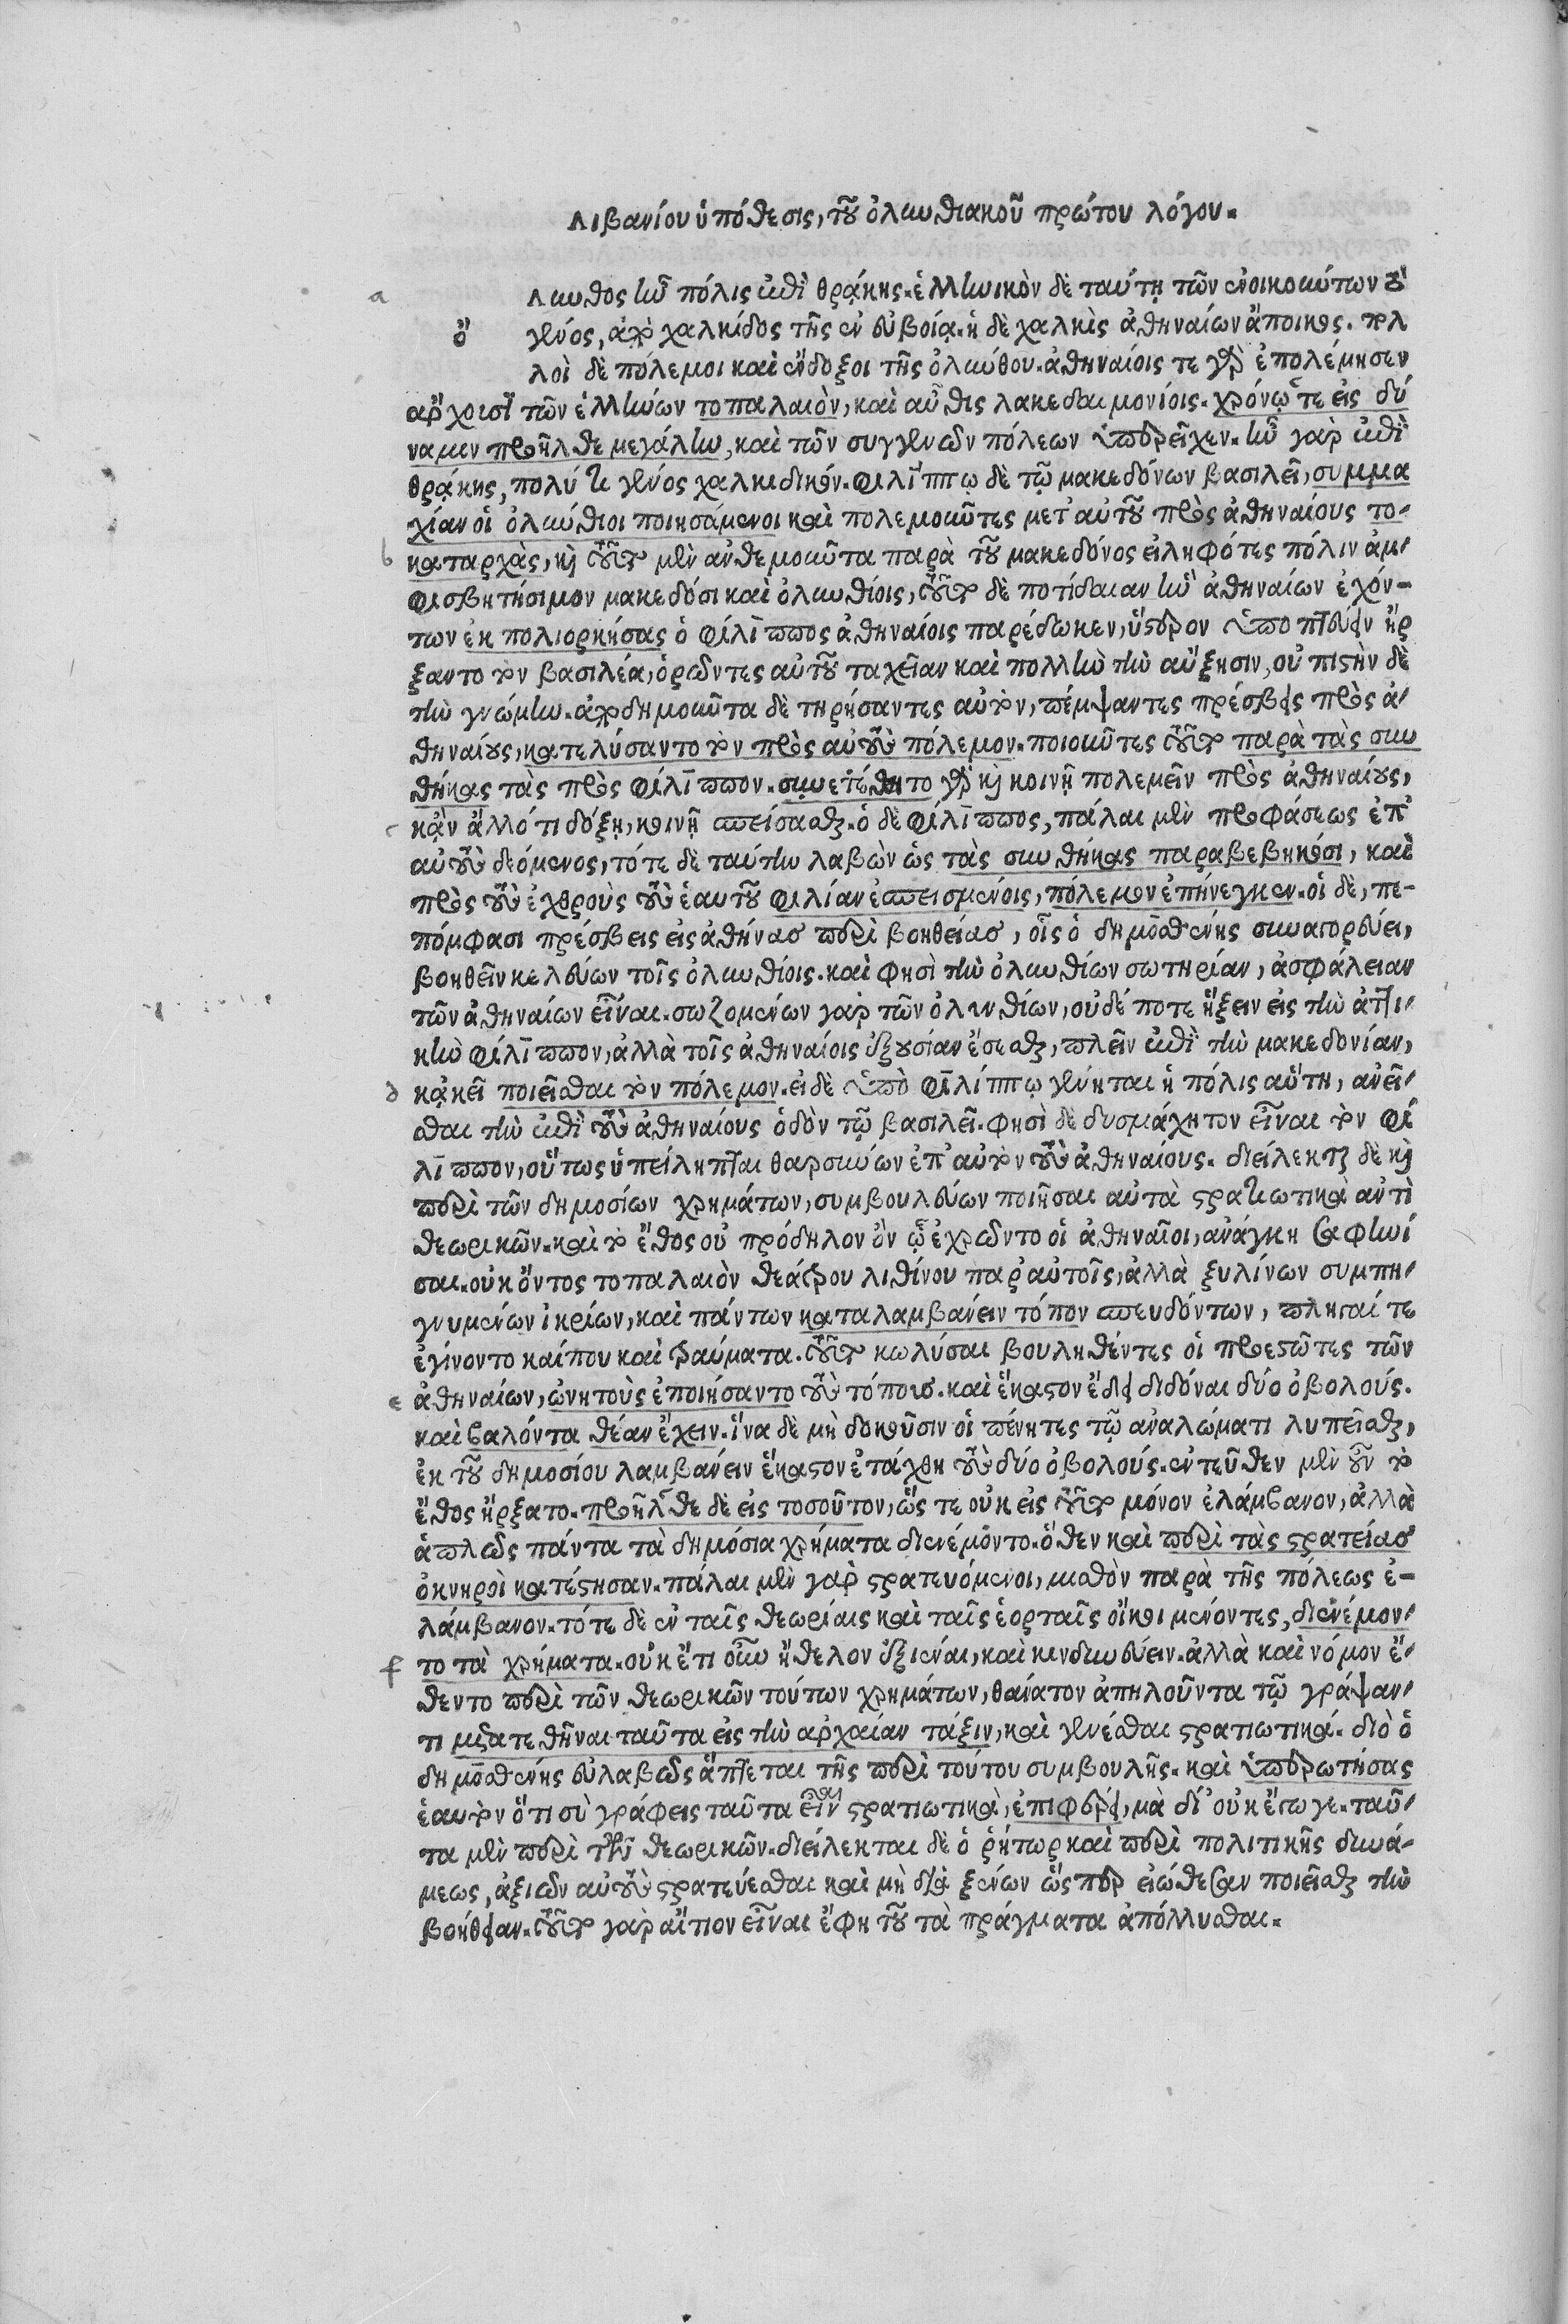 Λιβανίου ὑπόθεσις, τοῦ ὀλυνθιακοῦ πρώτου λόγου.
a λυνθος ἦν πόλις ἐπὶ θρᾴκης. ἑλληνικὸν δὲ ταύτῃ τῶν ἐνοικούντων τὸ
ὄ γένος, ἀπὸ χαλκίδος τῆς ἐν εὐβοίᾳ. ἡ δὲ χαλκὶς ἀθηναίων ἄποικος. πολ
λοὶ δὲ πόλεμοι καὶ ἔνδοξοι τῆς ὀλύνθου. ἀθηναίοις τε γὰρ ἐπολέμησεν
ἄρχουσι τῶν ἑλλήνων τοπαλαιὸν, καὶ αὖθις λακεδαιμονίοις. χρόνῳ τε εἰς δύ
ναμιν προῆλθε μεγάλην, καὶ τῶν συγγενῶν πόλεων ὑπερεῖχεν. ἦν γὰρ ἐπὶ
θρᾴκης, πολύ τι γένος χαλκιδικόν. φιλίππῳ δὲ τῷ μακεδόνων βασιλεῖ, συμμα
χίαν οἱ ὀλύνθιοι ποιησάμενοι καὶ πολεμοῦντες μετ' αὐτοῦ πρὸς ἀθηναίους το-
b καταρχὰς, καὶ τοῦτο μὲν ἀνθεμοῦντα παρὰ τοῦ μακεδόνος εἰληφότες πόλιν ἀμ-
φισβητήσιμον μακεδόσι καὶ ὀλυνθίοις, τοῦτο δὲ ποτίδαιαν ἣν ἀθηναίων ἐχόν-
των ἐκ πολιορκήσας ὁ φίλιππος ἀθηναίοις παρέδωκεν, ὕστερον ὑποπτεύειν ἤρ
ξαντο τὸν βασιλέα, ὁρῶντες αὐτοῦ ταχεῖαν καὶ πολλὴν τὴν αὔξησιν, οὐ πιστὴν δὲ
τὴν γνώμην. ἀποδημοῦντα δὲ τηρήσαντες αὐτὸν, πέμψαντες πρέσβεις πρὸς ἀ-
θηναίους, κατελύσαντο τὸν πρὸς αὐτοὺς πόλεμον. ποιοῦντες τοῦτο παρὰ τὰς συν
θήκας τὰς πρὸς φίλιππον. συνετέθειντο γὰρ καὶ κοινῇ πολεμεῖν πρὸς ἀθηναίους,
c κἂν ἄλλό τι δόξῃ, κοινῇ σπείσασθαι. ὁ δὲ φίλιππος, πάλαι μὲν προφάσεως ἐπ'
αὐτοὺς δεόμενος, τότε δὲ ταύτην λαβὼν ὡς τὰς συνθήκας παραβεβηκόσι, καὶ
πρὸς τοὺς ἐχθροὺς τοὺς ἑαυτοῦ φιλίαν ἐσπεισμένοις, πόλεμον ἐπήνεγκεν. οἱ δὲ, πε-
πόμφασι πρέσβεις εἰς ἀθήνας περὶ βοηθείας, οἷς ὁ δημοσθένης συναγορεύει,
βοηθεῖν κελεύων τοῖς ὀλυνθίοις. καὶ φησὶ τὴν ὀλυνθίων σωτηρίαν, ἀσφάλειαν
τῶν ἀθηναίων εἶναι. σωζομένων γὰρ τῶν ὀλυνθίων, οὐδέ ποτε ἥξειν εἰς τὴν ἀττι-
κὴν φίλιππον, ἀλλὰ τοῖς ἀθηναίοις ἐξουσίαν ἔσεσθαι, πλεῖν ἐπὶ τὴν μακεδονίαν,
d κἀκεῖ ποιεῖσθαι τὸν πόλεμον. εἰ δὲ ὑπὸ φιλίππῳ γένηται ἡ πόλις αὕτη, ἀνεῖ-
σθαι τὴν ἐπὶ τοὺς ἀθηναίους ὁδὸν τῷ βασιλεῖ. φησὶ δὲ δυσμάχητον εἶναι τὸν φί
λιππον, οὕτως ὑπείληπται θαρσύνων ἐπ' αὐτὸν τοὺς ἀθηναίους. διείλεκται δὲ καὶ
περὶ τῶν δημοσίων χρημάτων, συμβουλεύων ποιῆσαι αὐτὰ στρατιωτικὰ ἀντὶ
θεωρικῶν. καὶ τὸ ἔθος οὐ πρόδηλον ὂν ᾧ ἐχρῶντο οἱ ἀθηναῖοι, ἀνάγκη σαφηνί
σαι. οὐκ ὄντος τοπαλαιὸν θεάτρου λιθίνου παρ' αὐτοῖς, ἀλλὰ ξυλίνων συμπη-
γνυμένων ἰκρίων, καὶ πάντων καταλαμβάνειν τόπον σπευδόντων, πληγαί τε
ἐγίνοντο καίπου καὶ τραύματα. τοῦτο κωλύσαι βουληθέντες οἱ προεστῶτες τῶν
e ἀθηναίων, ὠνητοὺς ἐποιήσαντο τοὺς τόπους. καὶ ἕκαστον ἔδει διδόναι δύο ὀβολούς.
καὶ βαλόντα θέαν ἔχειν. ἵνα δὲ μὴ δοκοῦσιν οἱ πένητες τῷ ἀναλώματι λυπεῖσθαι,
ἐκ τοῦ δημοσίου λαμβάνειν ἕκαστον ἐτάχθη τοὺς δύο ὀβολούς. ἐντεῦθεν μὲν οὖν τὸ
ἔθος ἤρξατο. προῆλθε δὲ εἰς τοσοῦτον, ὥς τε οὐκ εἰς τοῦτο μόνον ἐλάμβανον, ἀλλὰ
ἁπλῶς πάντα τὰ δημόσια χρήματα διενέμοντο. ὅθεν καὶ περὶ τὰς στρατείας
ὀκνηροὶ κατέστησαν. πάλαι μὲν γὰρ στρατευόμενοι, μισθὸν παρὰ τῆς πόλεως ἐ-
λάμβανον. τότε δὲ ἐν ταῖς θεωρίαις καὶ ταῖς ἑορταῖς οἴκοι μένοντες, διενέμον-
f το τὰ χρήματα. οὐκ ἔτι οὖν ἤθελον ἐξιέναι, καὶ κινδυνεύειν. ἀλλὰ καὶ νόμον ἔ-
θεντο περὶ τῶν θεωρικῶν τούτων χρημάτων, θάνατον ἀπηλοῦντα τῷ γράψαν-
τι μετατεθῆναι ταῦτα εἰς τὴν ἀρχαίαν τάξιν, καὶ γενέσθαι στρατιωτικά. διὸ ὁ
δημοσθένης εὐλαβῶς ἅπτεται τῆς περὶ τούτου συμβουλῆς. καὶ ὑπερωτήσας
ἑαυτὸν ὅτι σὺ γράφεις ταῦτα εἶναι στρατιωτικὰ, ἐπιφέρει, μὰ δί' οὐκ ἔγωγε. ταῦ-
τα μὲν περὶ τῶν θεωρικῶν. διείλεκται δὲ ὁ ῥήτωρ καὶ περὶ πολιτικῆς δυνά-
μεως, ἀξιῶν αὐτοὺς στρατεύεσθαι καὶ μὴ διὰ ξένων ὥς περ εἰώθεσαν ποιεῖσθαι τὴν
βοήθειαν. τοῦτο γὰρ αἴτιον εἶναι ἔφη τοῦ τὰ πράγματα ἀπόλλυσθαι.